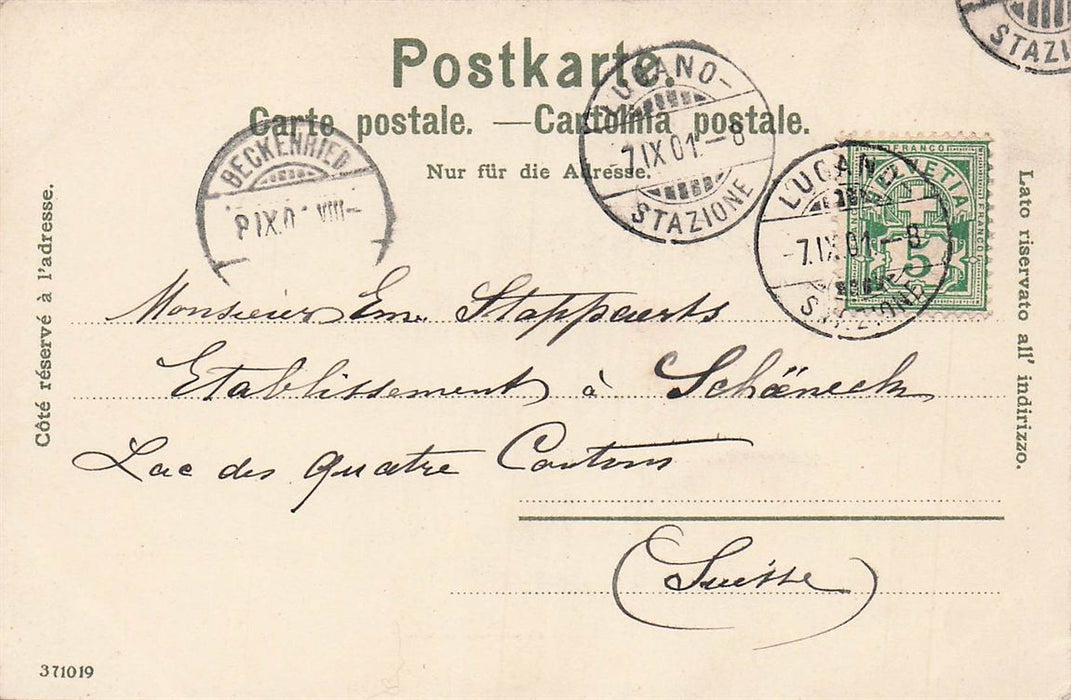 Postkarte.
Carte postale. — Cartolina postale.
Nur für die Adresse.
Côté réservé à l'adresse.
Lato riservato all' indirizzo.
BECKENRIED
8 IX 0 VIII—
LUGANO—
7.IX.01.—8
STAZIONE
LUGAN
-7.IX.01.—8
STAZIONE
STAZI
FRANCO
HELVETIA
FRANCO
5
Monsieur Em. Stappaerts
Etablissement à Schœneck
Lac des Quatre Cantons
(Suisse)
371019